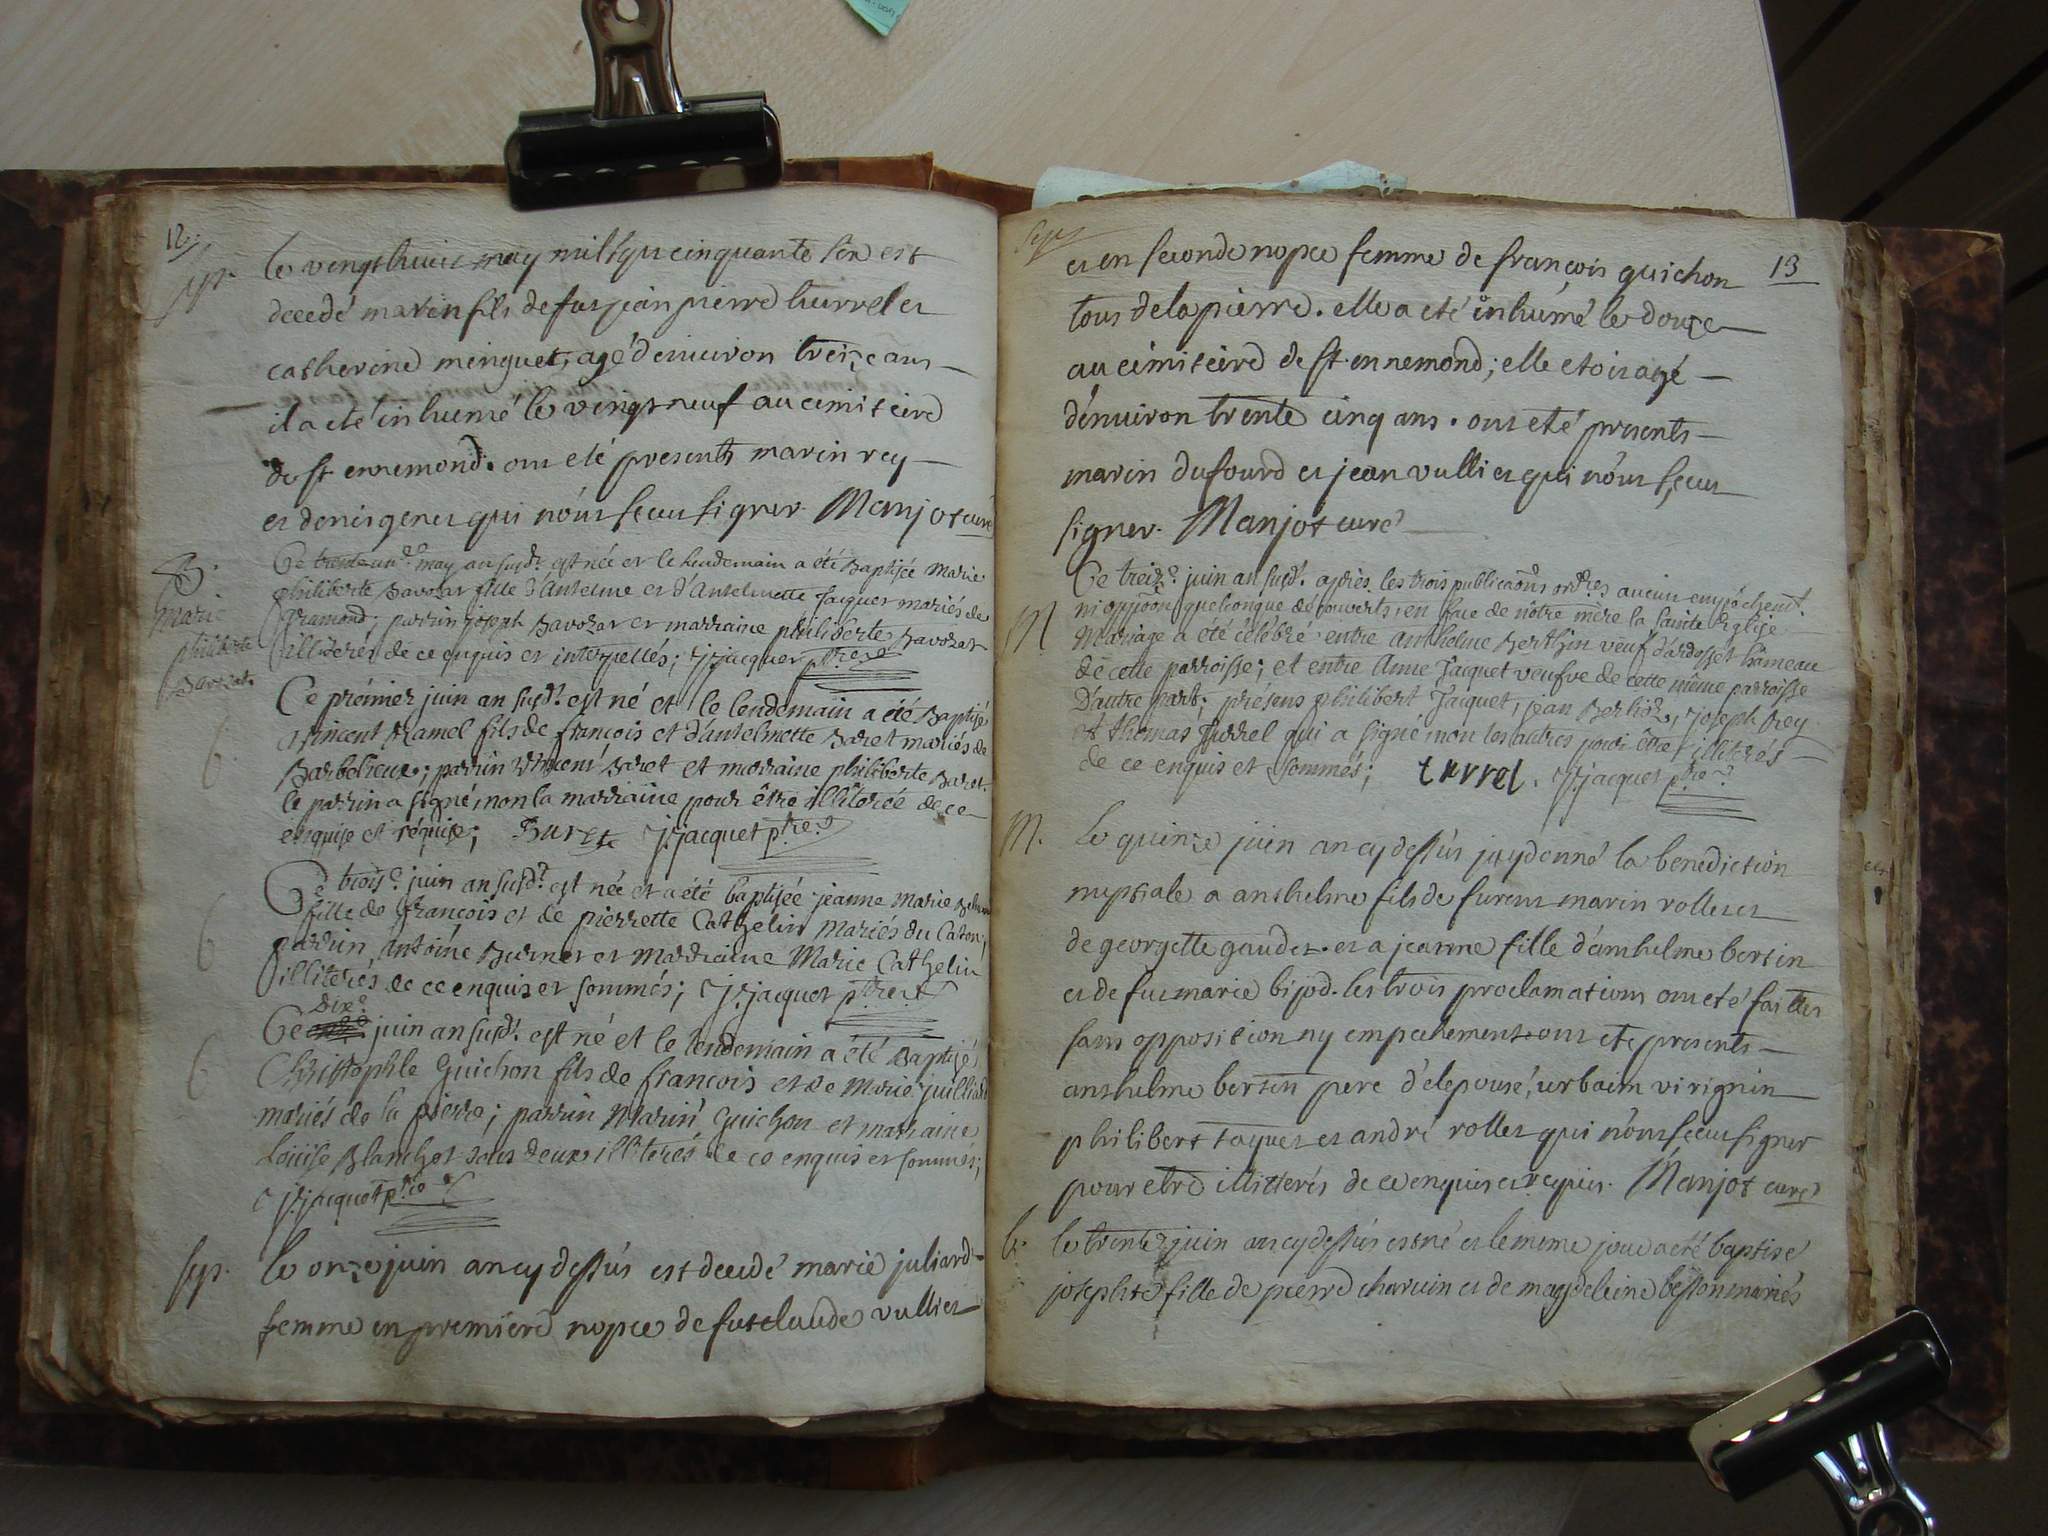 12
Sep. le vingt huit may mil sept cinquante six est
decedé marin fils de fut jean pierre turrel et
catherine minguet, agé d'enuiron treize ans
il a eté inhumé le vingt neuf au cimiteire
de st ennemond. ont eté presents marin rey
et denis genet qui nont sceu signer. Manjot curé
B. Ce trente un.e may an susd.t est née et le lendemain a été Baptisée Marie
marie philiberte Bavozat fille d'Antelme et d'Antelmette Jacquet mariés de
philiberte parrin joseph Bavozat et marraine philiberte Bavozat
Bavozat illiterés de ce enquis et interpellés; J. jacquet p.tre
Ce prémier juin an susd.t est né et le lendemain a été Baptisé
vincent Ramel fils de françois et d'antelmette Baret mariés de
b Barbelieux; parrin vincent Baret et marraine philiberte Baret.
le parrin a signé, non la marraine pour être illiterée de ce
enquise et réquise; Baret J. jacquet p.tre
Ce trois.e juin an susd.t est née et a été baptisée jeanne Marie
b fille de françois et de pierrette Cathelin Mariés du Caton;
parrin, antoine Burnet et Marraine Marie Cathelin
illiterés de ce enquis et sommés; J. jacquet p.tre
Dix.e
Ce juin an susd.t est né et le lendemain a été Baptisé
b Christophle Guichon fils de françois et de Marie juilliard
mariés de la pierre; parrin Marin Guichon et marraine
Louise Blanchet tous deux illiterés de ce enquis et sommés;
J. jacquet p.tre
Sep. le onze juin an cy dessus est decedé marie juliard
femme en premiere nopce de fut claude vullier
Sep. 13
et en seconde nopce femme de françois guichon
tous de la pierre. elle a eté inhumé le douze
au cimiteire de st. ennemond; elle etoit agé
d'enuiron trente cinq ans. ont eté presents
marin dufourd et jean vullier qui nont sceu
signer. Manjot curé
Ce treiz.e juin an susd.t après les trois publicaõns ord.res aucun empéchem.t
M ni oppõon quelconque découverts, en face de nôtre mère la sainte Eglise
Mariage a été célébré entre anthelme Berthin veuf d'ardosset hâmeau
de cette parroisse; et entre Anne Jacquet veufve de cette même parroisse
D'autre part; présens philibert Jacquet, jean Berlioz, joseph Rey
et thomas Turrel qui a signé non les autres pour être illiterés
de ce enquis et sommés; turrel. J. jacquet p.tre
M. Le quinze juin an cy dessus j'ay donné la benediction
nuptiale a anthelme fils de furent marin rollet et
de georgette gaudet. et a jeanne fille d'anthelme bertin
et de fut marie bijod. les trois proclamations ont eté faittes
sans opposition ny empechement ont eté presents
anthelme bertin pere d'el'epouse, urbain virignin
philibert taquet et andré rollet qui nont sceu signer
pour etre illitterés de ce enquis et requis. Manjot curé
b. le trente juin an cy dessus est né et le meme jour a eté baptisé
josephte fille de pierre charuin et de magdeleine besson mariés